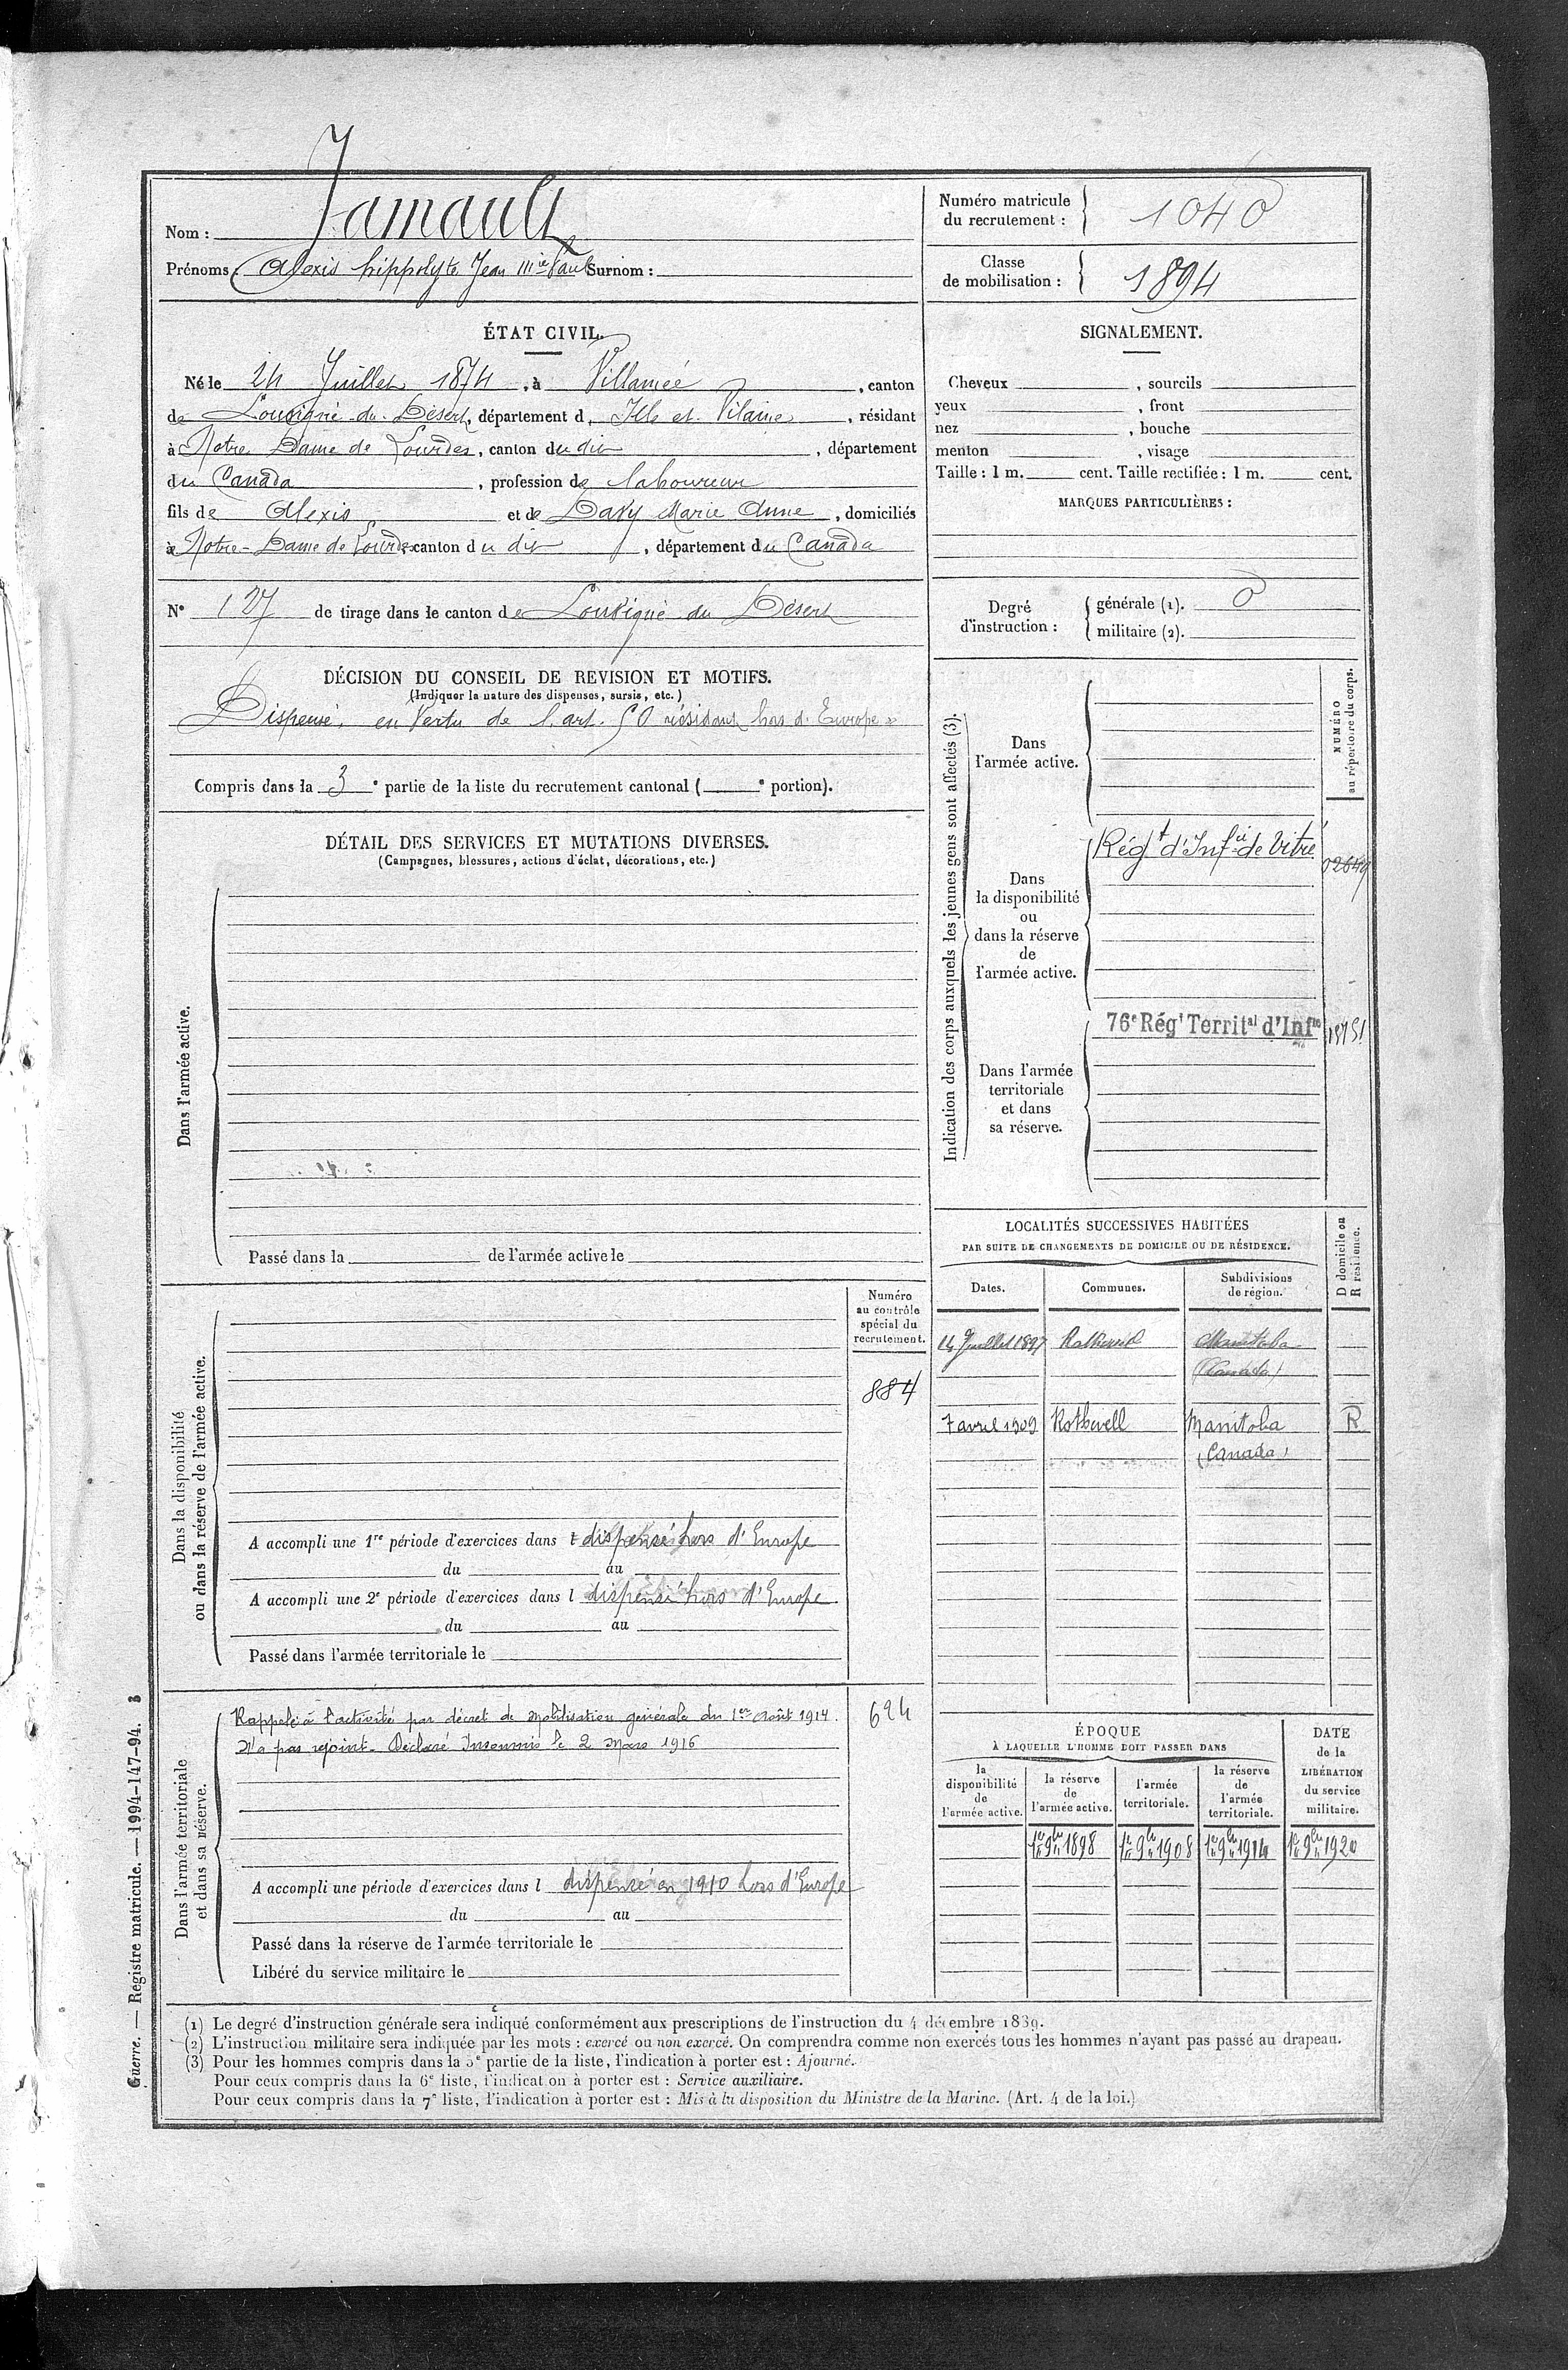 Nom : Jamault
Prénoms : Alexis hippolyte Jean Mie Paul Surnom :
Numéro matricule du recrutement : 1040
Classe de mobilisation : 1894
ÉTAT CIVIL.
Né le 24 Juillet 1874, à Villamée, canton
de Louvigné-du-Désert, département d Ille et Vilaine, résidant
à Notre Dame de Lourdes, canton du dit, département
du Canada, profession de laboureur
fils de Alexis et de Davy Marie Anne, domiciliés
à Notre-Dame de Lourdes canton du dit, département du Canada
N° 127 de tirage dans le canton de Louvigné du Désert
SIGNALEMENT.
Cheveux , sourcils
yeux , front
nez , bouche
menton , visage
Taille : 1 m. cent. Taille rectifiée : 1 m. cent.
MARQUES PARTICULIÈRES :
Degré d'instruction : générale (1). 0
militaire (2).
DÉCISION DU CONSEIL DE REVISION ET MOTIFS.
(Indiquer la nature des dispenses, sursis, etc.)
Dispensé en Vertu de l'art. 50 résidant hors d'Europe
Compris dans la 3e partie de la liste du recrutement cantonal ( e portion).
DÉTAIL DES SERVICES ET MUTATIONS DIVERSES.
(Campagnes, blessures, actions d'éclat, décorations, etc.)
Dans l'armée active.
Passé dans la de l'armée active le
Indication des corps auxquels les jeunes gens sont affectés (3).
NUMÉRO au répertoire du corps.
Dans l'armée active.
Dans la disponibilité ou dans la réserve de l'armée active.
Régt d'Infie de Vitré
02649
Dans l'armée territoriale et dans sa réserve.
76e Régt Territal d'Infie
LOCALITÉS SUCCESSIVES HABITÉES
PAR SUITE DE CHANGEMENTS DE DOMICILE OU DE RÉSIDENCE.
Dates. Communes. Subdivisions de région. D domicile ou R résidence.
14 Juillet 1897 Manitoba
(Canada)
7 avril 1909 Rothwell Manitoba R
(Canada)
Dans la disponibilité ou dans la réserve de l'armée active.
Numéro au contrôle spécial du recrutement.
884
A accompli une 1re période d'exercices dans l dispensé hors d'Europe
du au
A accompli une 2e période d'exercices dans l dispensé hors d'Europe
du au
Passé dans l'armée territoriale le
Dans l'armée territoriale et dans sa réserve.
Rappelé à l'activité par décret de mobilisation générale du 1er Août 1914.
N'a pas rejoint. Déclaré Insoumis le 2 Mars 1916
624
A accompli une période d'exercices dans l dispensé en 1910 hors d'Europe
du au
Passé dans la réserve de l'armée territoriale le
Libéré du service militaire le
ÉPOQUE
À LAQUELLE L'HOMME DOIT PASSER DANS
DATE de la LIBÉRATION du service militaire.
la disponibilité de l'armée active. la réserve de l'armée active. l'armée territoriale. la réserve de l'armée territoriale.
1er 9bre 1898 1er 9bre 1908 1er 9bre 1914 1er 9bre 1920
Guerre. — Registre matricule. — 1994-147-94. 3
(1) Le degré d'instruction générale sera indiqué conformément aux prescriptions de l'instruction du 4 décembre 1889.
(2) L'instruction militaire sera indiquée par les mots : exercé ou non exercé. On comprendra comme non exercés tous les hommes n'ayant pas passé au drapeau.
(3) Pour les hommes compris dans la 5e partie de la liste, l'indication à porter est : Ajourné.
Pour ceux compris dans la 6e liste, l'indication à porter est : Service auxiliaire.
Pour ceux compris dans la 7e liste, l'indication à porter est : Mis à la disposition du Ministre de la Marine. (Art. 4 de la loi.)